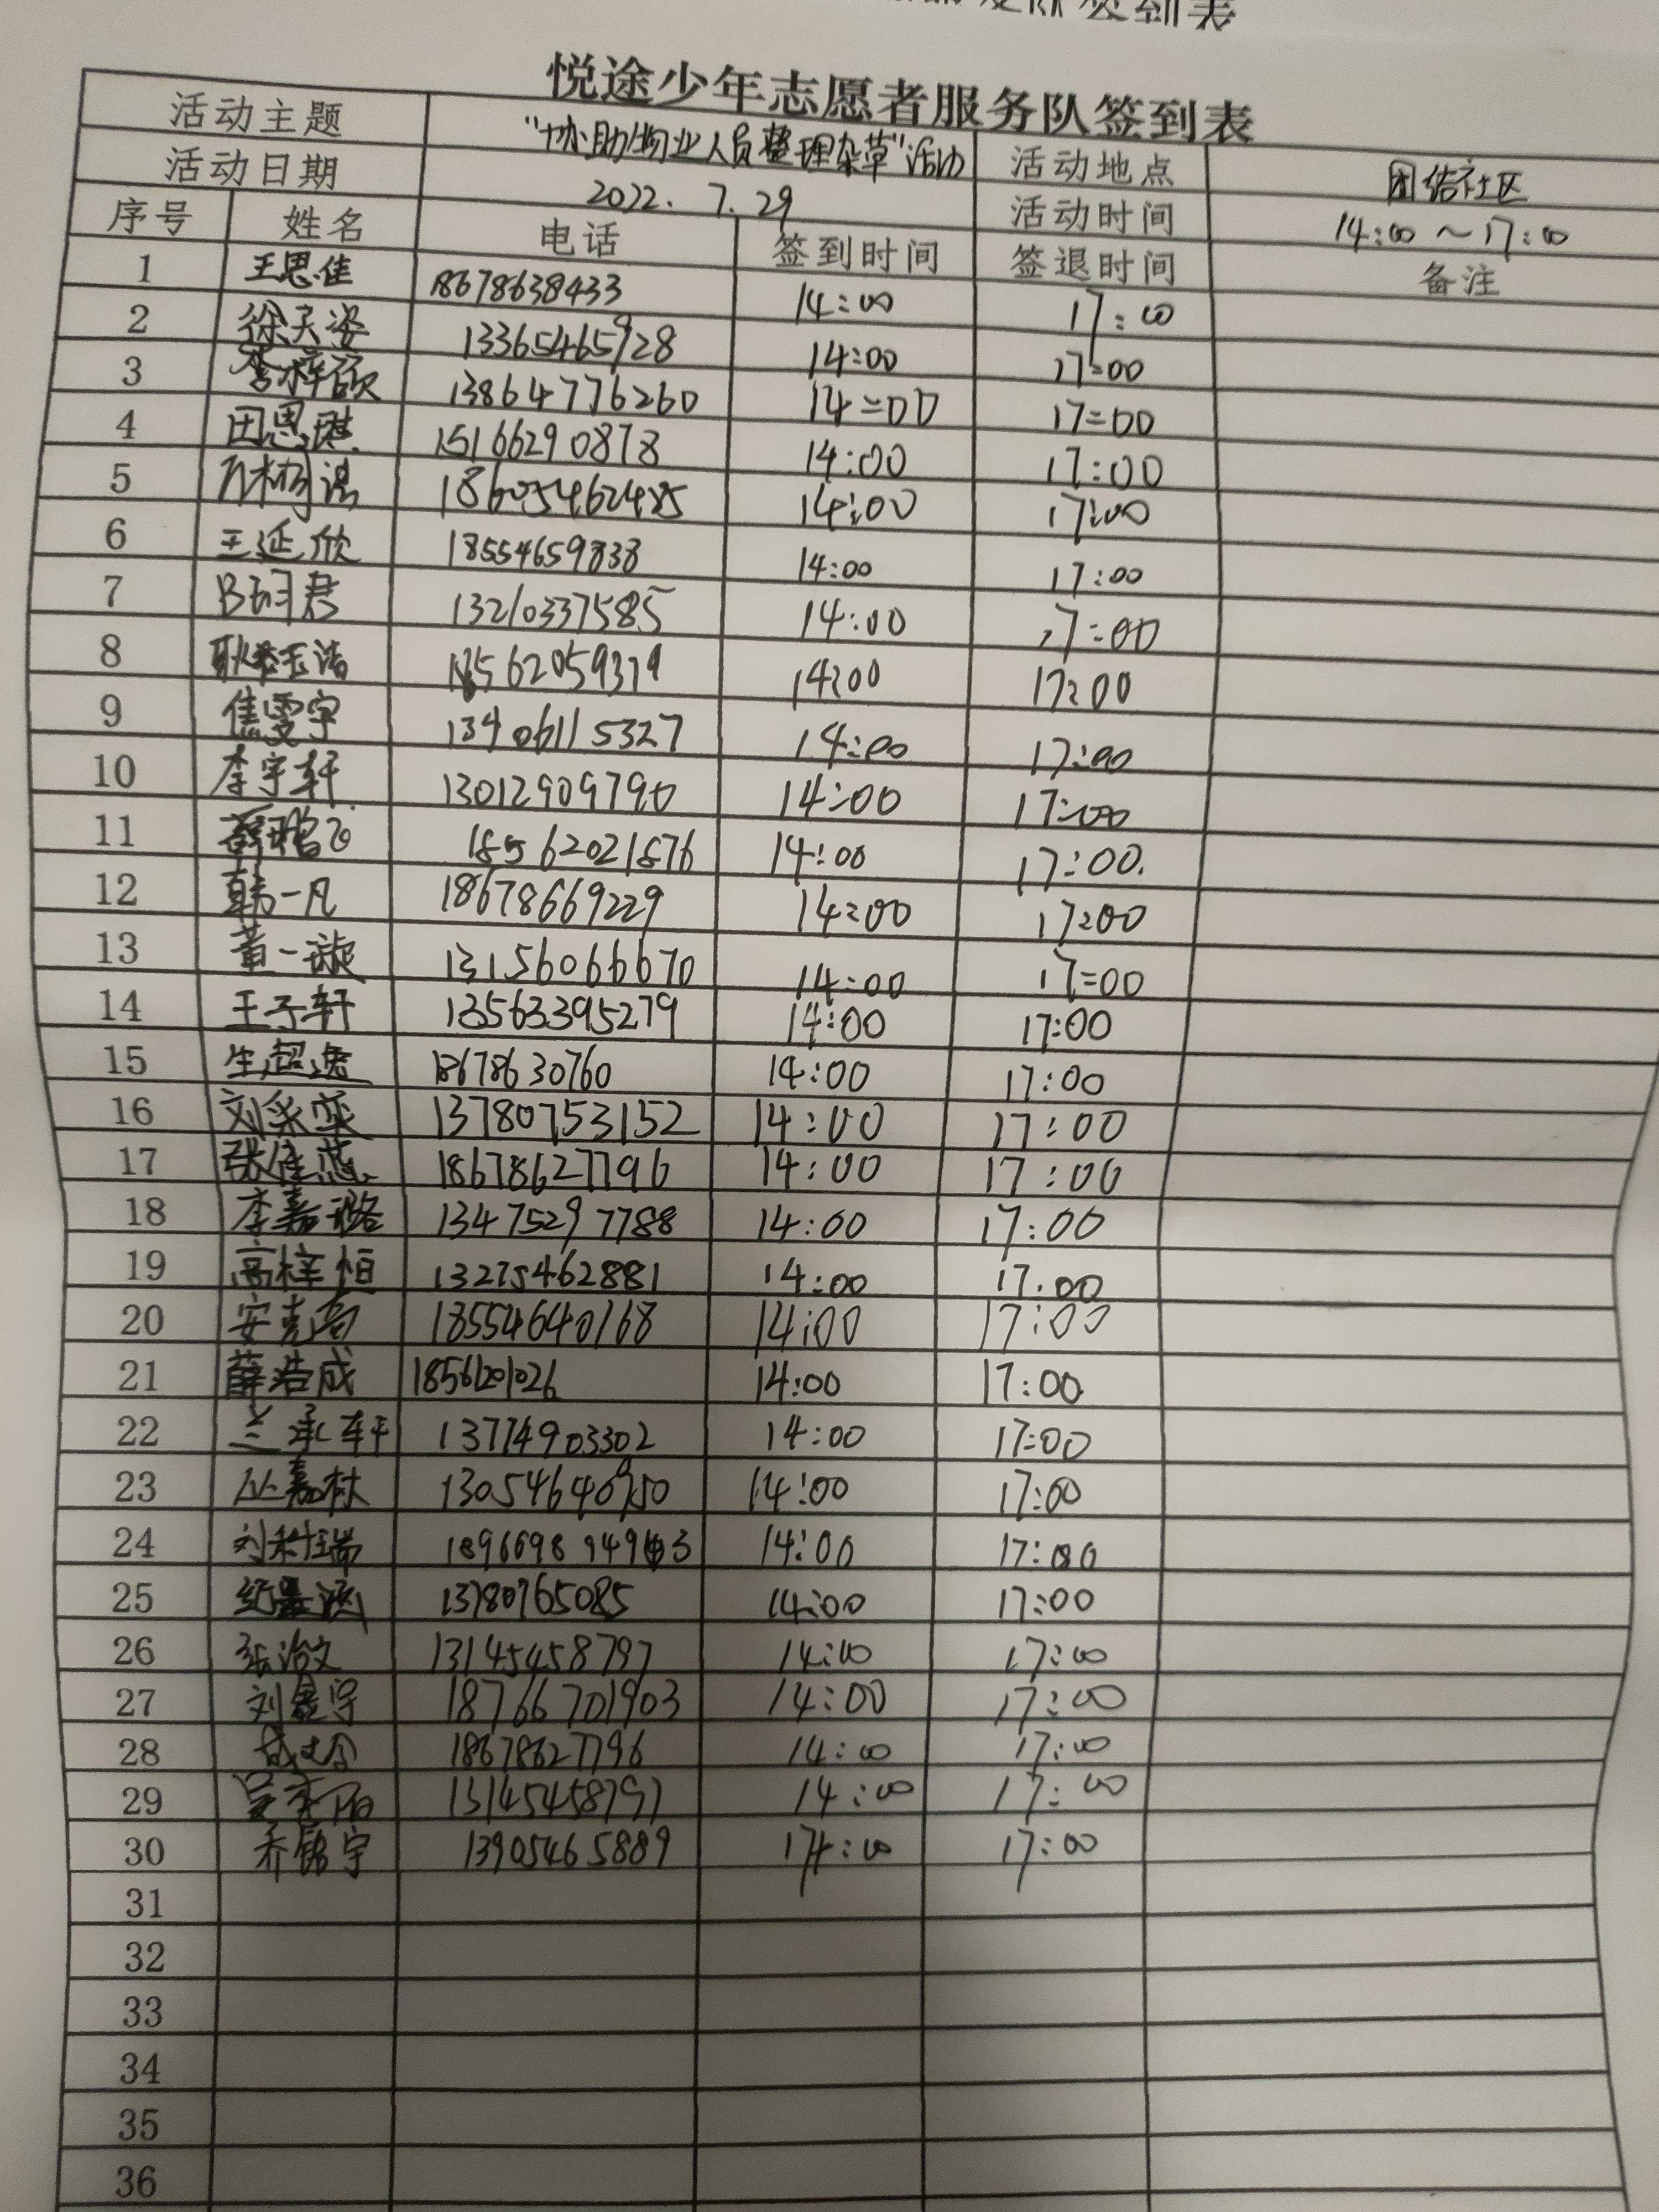 悦途少年志愿者服务队签到表
活动主题 “协助物业人员整理杂草”活动 活动地点 团结社区
活动日期 2022.7.29 活动时间 14:00～17:00
序号 姓名 电话 签到时间 签退时间 备注
1 王思佳 18678638433 14:00 17:00
2 徐天姿 13365465928 14:00 17:00
3 李梓硕 13864776260 14:00 17:00
4 田思琪 15166290878 14:00 17:00
5 14:00 17:00
6 王延欣 18554659838 14:00 17:00
7 13210337585 14:00 17:00
8 14:00 17:00
9 焦雯宇 13406115327 14:00 17:00
10 李宇轩 13012909790 14:00 17:00
11 薛鹏飞 18562021876 14:00 17:00.
12 韩一凡 18678669229 14:00 17:00
13 黄一璇 13156066670 14:00 17:00
14 王子轩 13563395279 14:00 17:00
15 生超逸 18678630760 14:00 17:00
16 137807753152 14:00 17:00
17 张佳慧 18678627796 14:00 17:00
18 李嘉璐 13475297788 14:00 17:00
19 高梓恒 13275462881 14:00 17:00
20 18554640168 14:00 17:00
21 薛浩成 1856201026 14:00 17:00
22 兰承轩 13774903302 14:00 17:00
23 丛嘉林 13054640950 14:00 17:00
24 14:00 17:00
25 13780765085 14:00 17:00
26 张治文 13145458797 14:00 17:00
27 刘鑫宇 18766701903 14:00 17:00
28 18678627796 14:00 17:00
29 13145458797 14:00 17:00
30 乔铭宇 13905465889 14:00 17:00
31
32
33
34
35
36